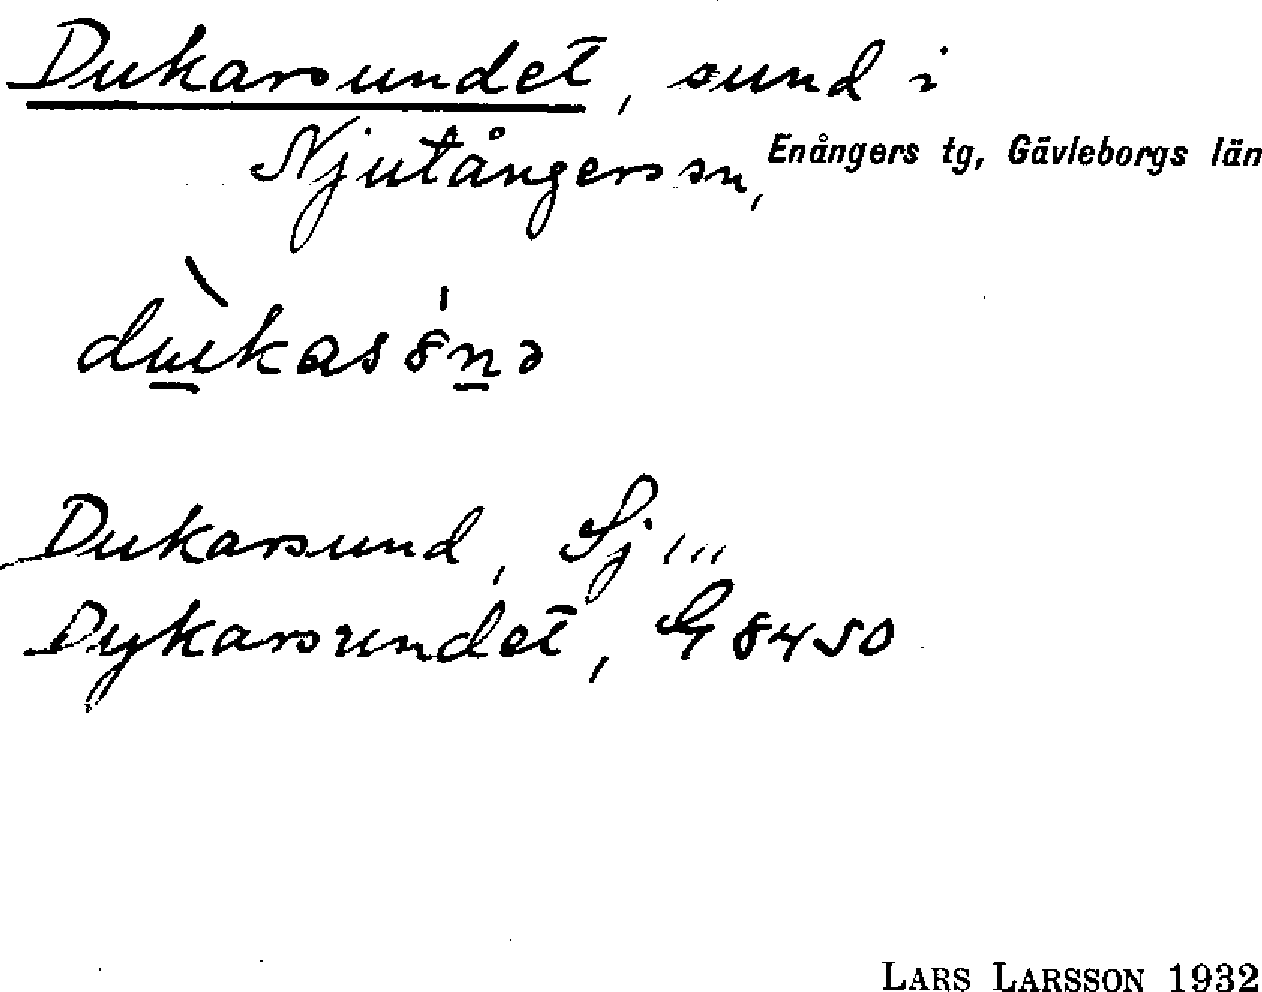 Dukarsundet, sund i
Njutångers sn, Enångers tg, Gävleborgs län
dùkasꞌ8nə
Dukarsund, Sj ...
Dykarsundet, G 8450
LARS LARSSON 1932